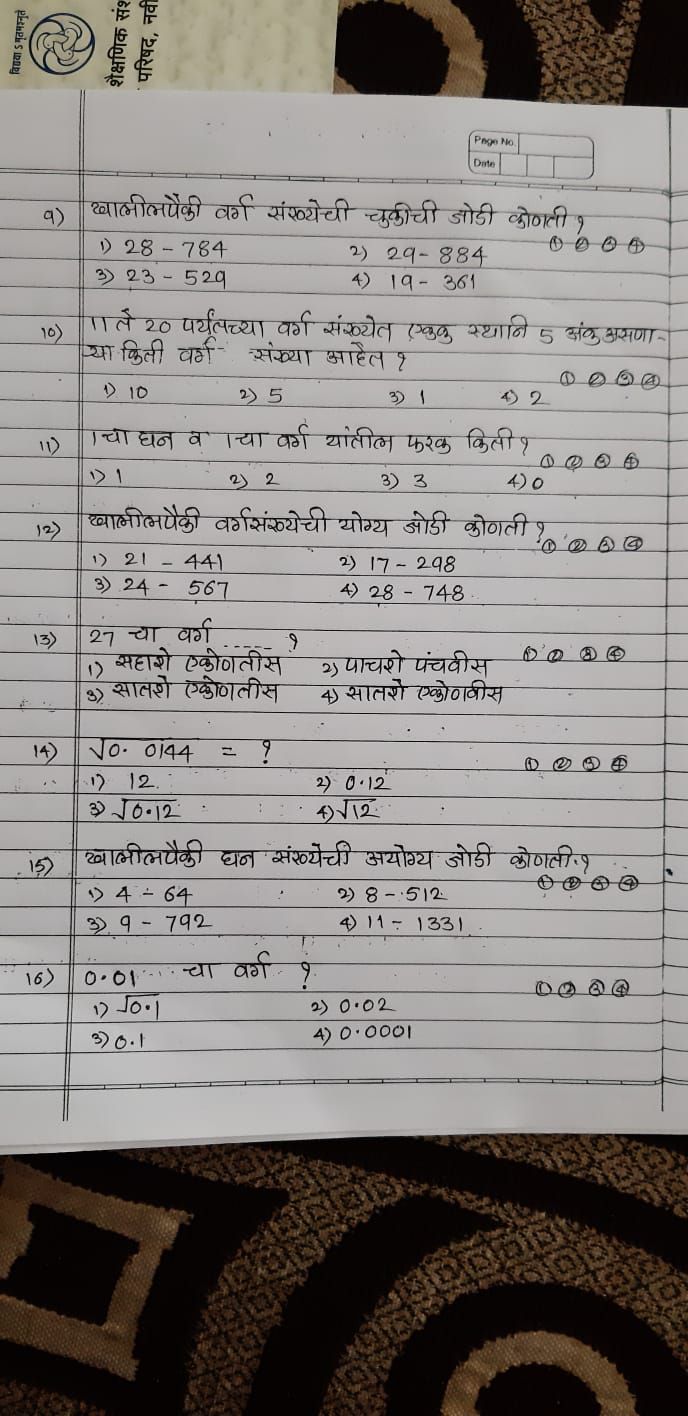 विद्यया ऽ मृतमश्नुते
शैक्षणिक संश
परिषद, नवी
Page No.
Date
9) खालीलपैकी वर्ग संख्येची चुकीची जोडी कोणती ?
① ② ③ ④
1) 28 - 784 2) 29 - 884
3) 23 - 529 4) 19 - 361
10) 11 ते 20 पर्यंतच्या वर्ग संख्येत एकक स्थानि 5 अंक असणा-
या किती वर्ग संख्या आहेत ?
① ② ③ ④
1) 10 2) 5 3) 1 4) 2
11) 1चा घन व 1चा वर्ग यांतील फरक किती ?
① ② ③ ④
1) 1 2) 2 3) 3 4) 0
12) खालीलपैकी वर्गसंख्येची योग्य जोडी कोणती ?
① ② ③ ④
1) 21 - 441 2) 17 - 298
3) 24 - 567 4) 28 - 748
13) 27 चा वर्ग ----- ?
① ② ③ ④
1) सहाशे एकोणतीस 2) पाचशे पंचवीस
3) सातशे एकोणतीस 4) सातशे एकोणवीस
14) √0.0144 = ?
① ② ③ ④
1) 12 2) 0.12
3) √0.12 4) √12
15) खालीलपैकी घन संख्येची अयोग्य जोडी कोणती ?
① ② ③ ④
1) 4 - 64 2) 8 - 512
3) 9 - 792 4) 11 - 1331
16) 0.01 चा वर्ग ?
① ② ③ ④
1) √0.1 2) 0.02
3) 0.1 4) 0.0001